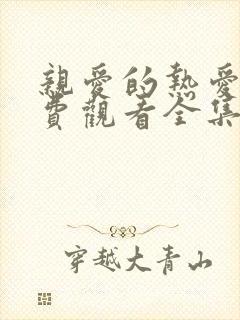 親愛的熱愛
費觀看全集
穿越大青山